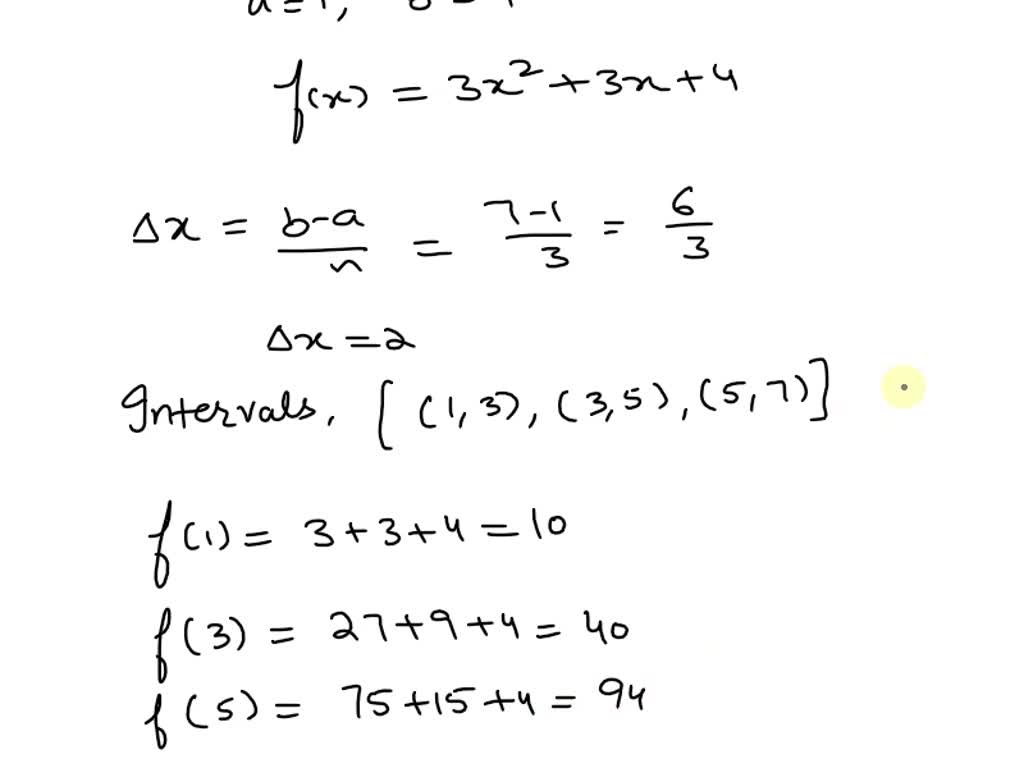 f(x) = 3x² + 3x + 4
Δx = b-a/n = 7-1/3 = 6/3
Δx = 2
Intervals, [(1,3), (3,5), (5,7)]
f(1) = 3+3+4 = 10
f(3) = 27+9+4 = 40
f(5) = 75+15+4 = 94